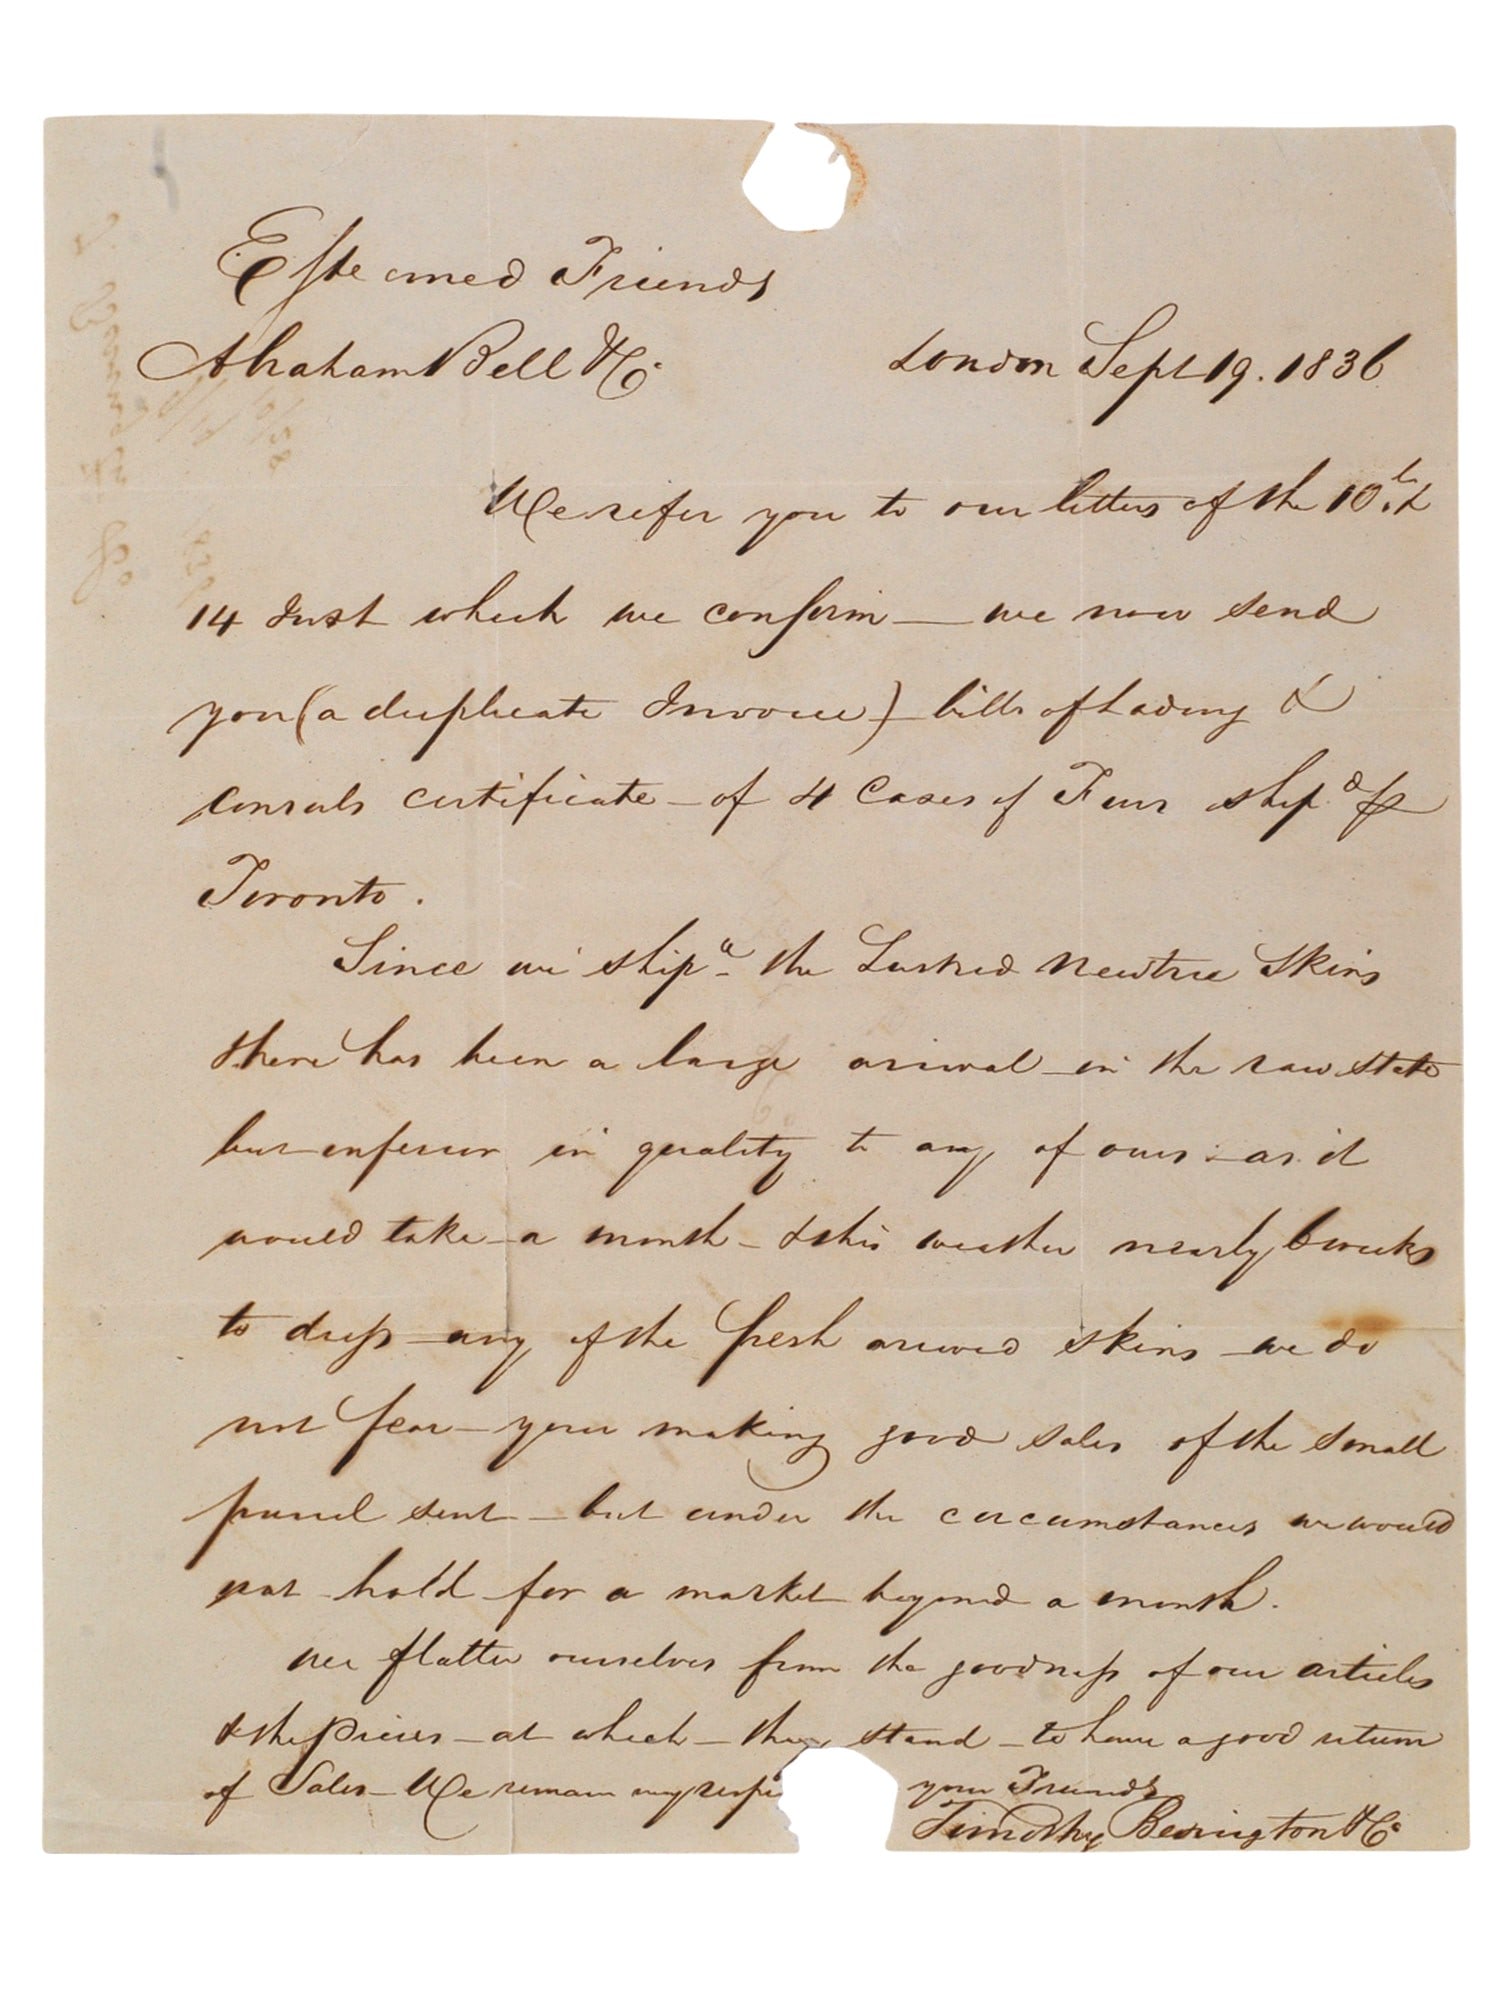 Esteemed Friends
Abraham Bell & Co London Sept 19. 1836
We refer you to our letters of the 10th &
14 Inst which we confirm — we now send
you (a duplicate Invoice) — bills of Lading &
Consuls certificate — of 4 Cases of Furs ship.d p
Toronto.
Since we ship.d the Lustred Neutria Skins
there has been a large arival in the raw state
but inferior in quality to any of ours — as it
would take a month — & this weather nearly 6 weeks
to dress any of the fresh arived skins — we do
not fear — your making good sales of the small
parcel sent — but under the circumstances we would
not hold for a market beyond a month.
We flatter ourselves from the goodness of our articles
& the prices — at which — they stand — to have a good return
of Sales — We remain very respe your Friends
Timothy Bevington & Co